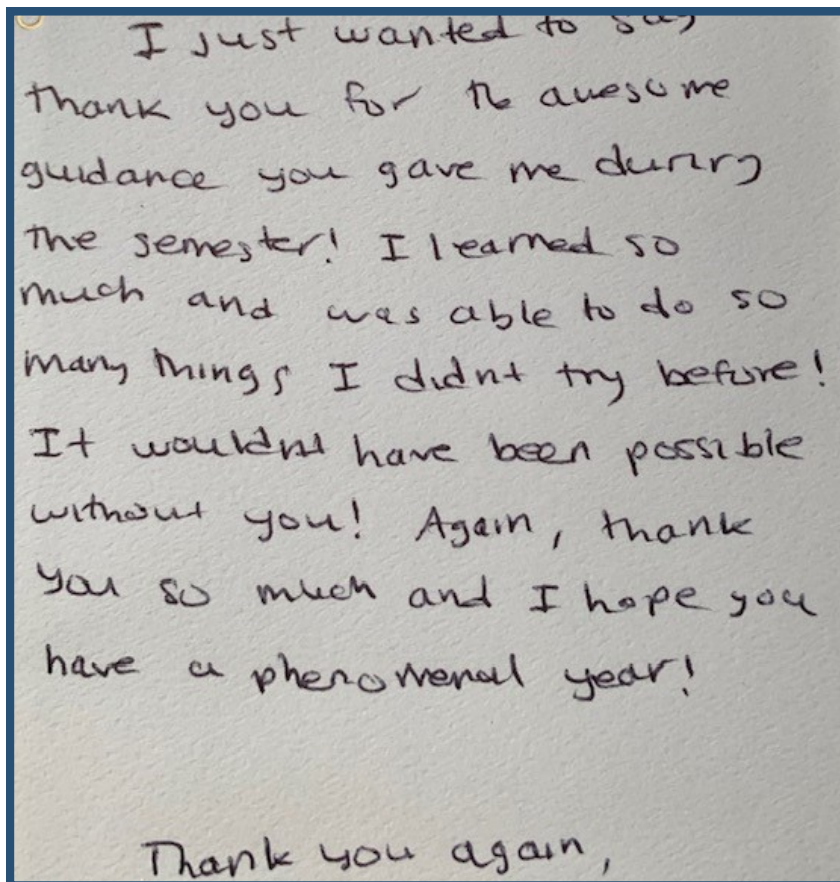 I just wanted to say
thank you for the awesome
guidance you gave me during
the semester! I learned so
much and was able to do so
many things I didnt try before!
It wouldnt have been possible
without you! Again, thank
you so much and I hope you
have a phenomenal year!
Thank you again,